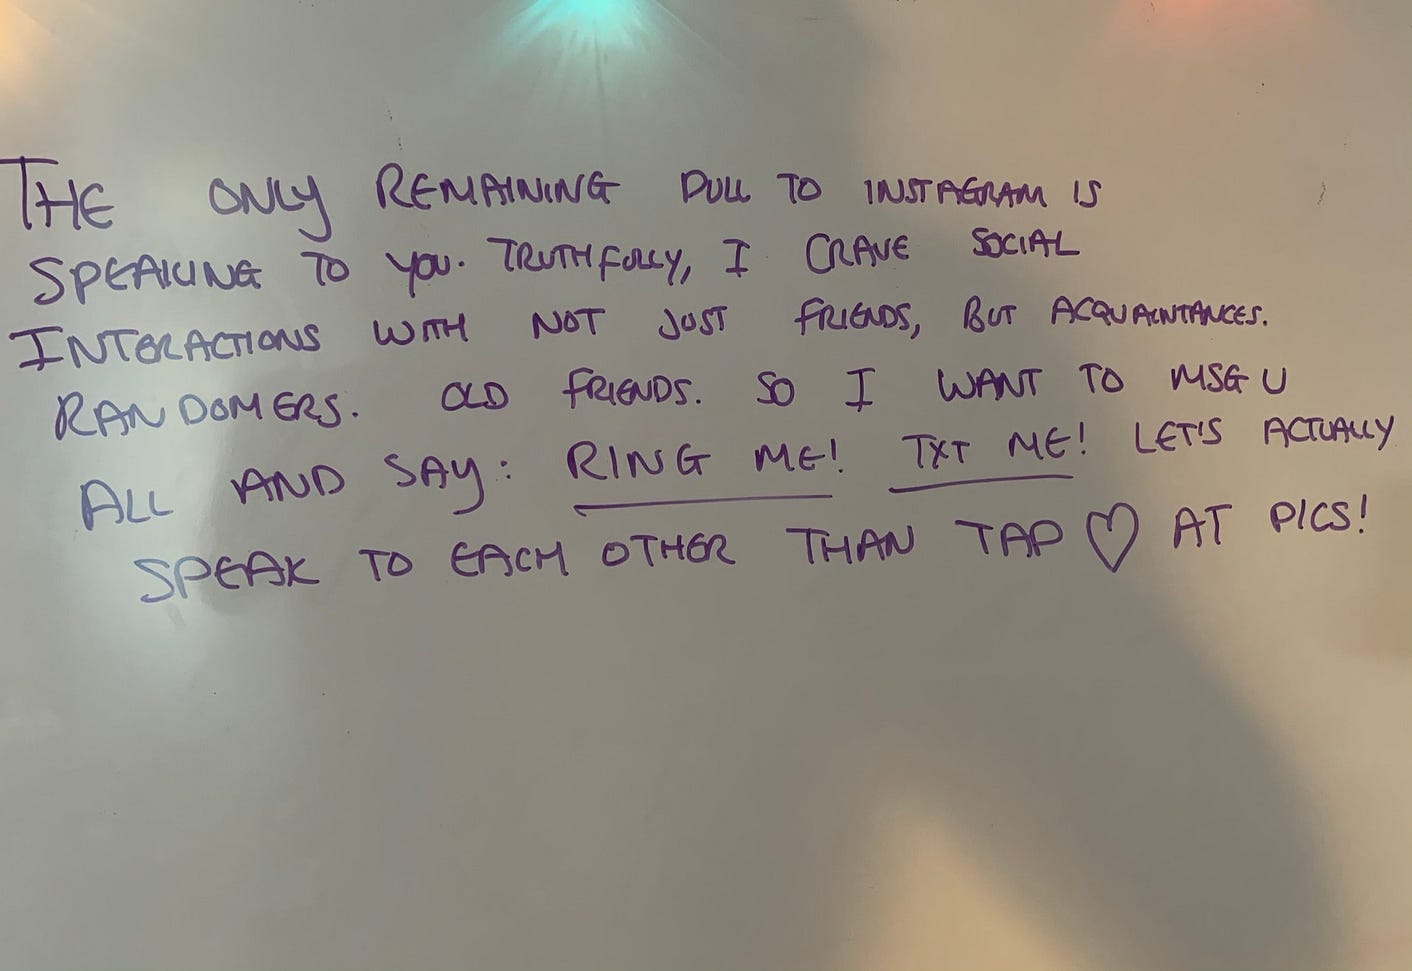 THE ONLY REMAINING PULL TO INSTAGRAM IS
SPEAKING TO YOU. TRUTHFULLY, I CRAVE SOCIAL
INTERACTIONS WITH NOT JUST FRIENDS, BUT ACQUAINTANCES.
RANDOMERS. OLD FRIENDS. SO I WANT TO MSG U
ALL AND SAY: RING ME! TXT ME! LET'S ACTUALLY
SPEAK TO EACH OTHER THAN TAP ♡ AT PICS!